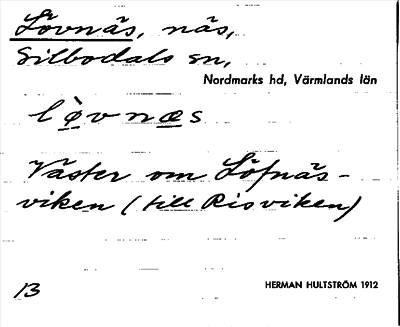 Lövnäs, näs,
Silbodals sn,
Nordmarks hd, Värmlands län
lo̱̊̀vnæ̱s
Väster om Löfnäs-
viken (till Risviken)
13
HERMAN HULTSTRÖM 1912